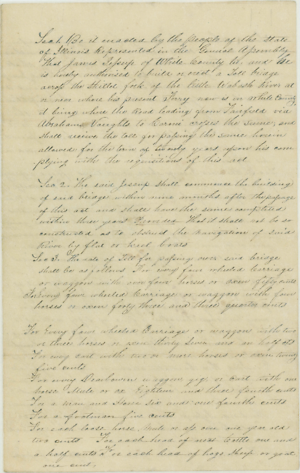 Sec 1 Be it enacted by the people of the State
of Illinois represented in the General Assembly
That James Jessup of White County be and he
is hereby authorised to build a Toll bridge
across the Skillet fork of the little Wabash River at
a near where his present Ferry now is in White County
it being where the road leading from Fairfield via
to Carmi crosses the same, and
shall receive the toll for passing the same herein
allowed for the term of years upon his com
plying with the requisitions of this act
Sec 2 The said Jessup shall commence the building
of said bridge within nine months after the passage
of this act and shall have the same completed
within three years Provided That it shall not be so
constructed as to obstruct the navigation of said
River by flat or keel boats
Sec 3 The rate of Toll for passing over said bridge
shall be as follows For every four wheeled carriage
or waggon with six horses or oxen fifty cents
For every four wheeled Carriage or waggon with four
horses or oxen forty three and three quarter cents
For every four wheeled Carriage or waggon with two
or three horses or oxen thirty seven and an half cts
For every cart with two or more horses or oxen twenty
five cents
For every Dearborn waggon gig or cart with one
horse Mule or ox Eighteen and three fourth cents
For a man and horse six and one fourth cents
For a footman five cents
For each loose horse Mule or ass one year old
two cents For each head of neat Cattle one and
a half cents For each head of hogs Sheep or goat
one cent.